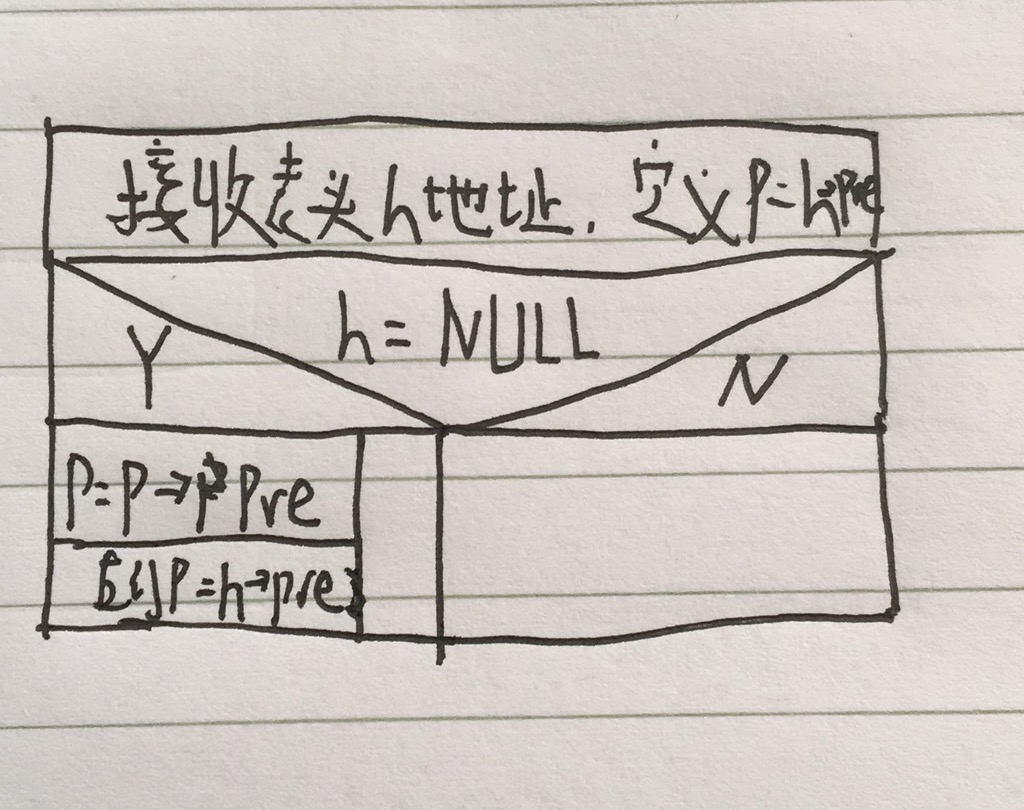 接收表头h地址. 定义P=h→pre
h= NULL
Y
N
P=P→Pre
直到P=h→pre